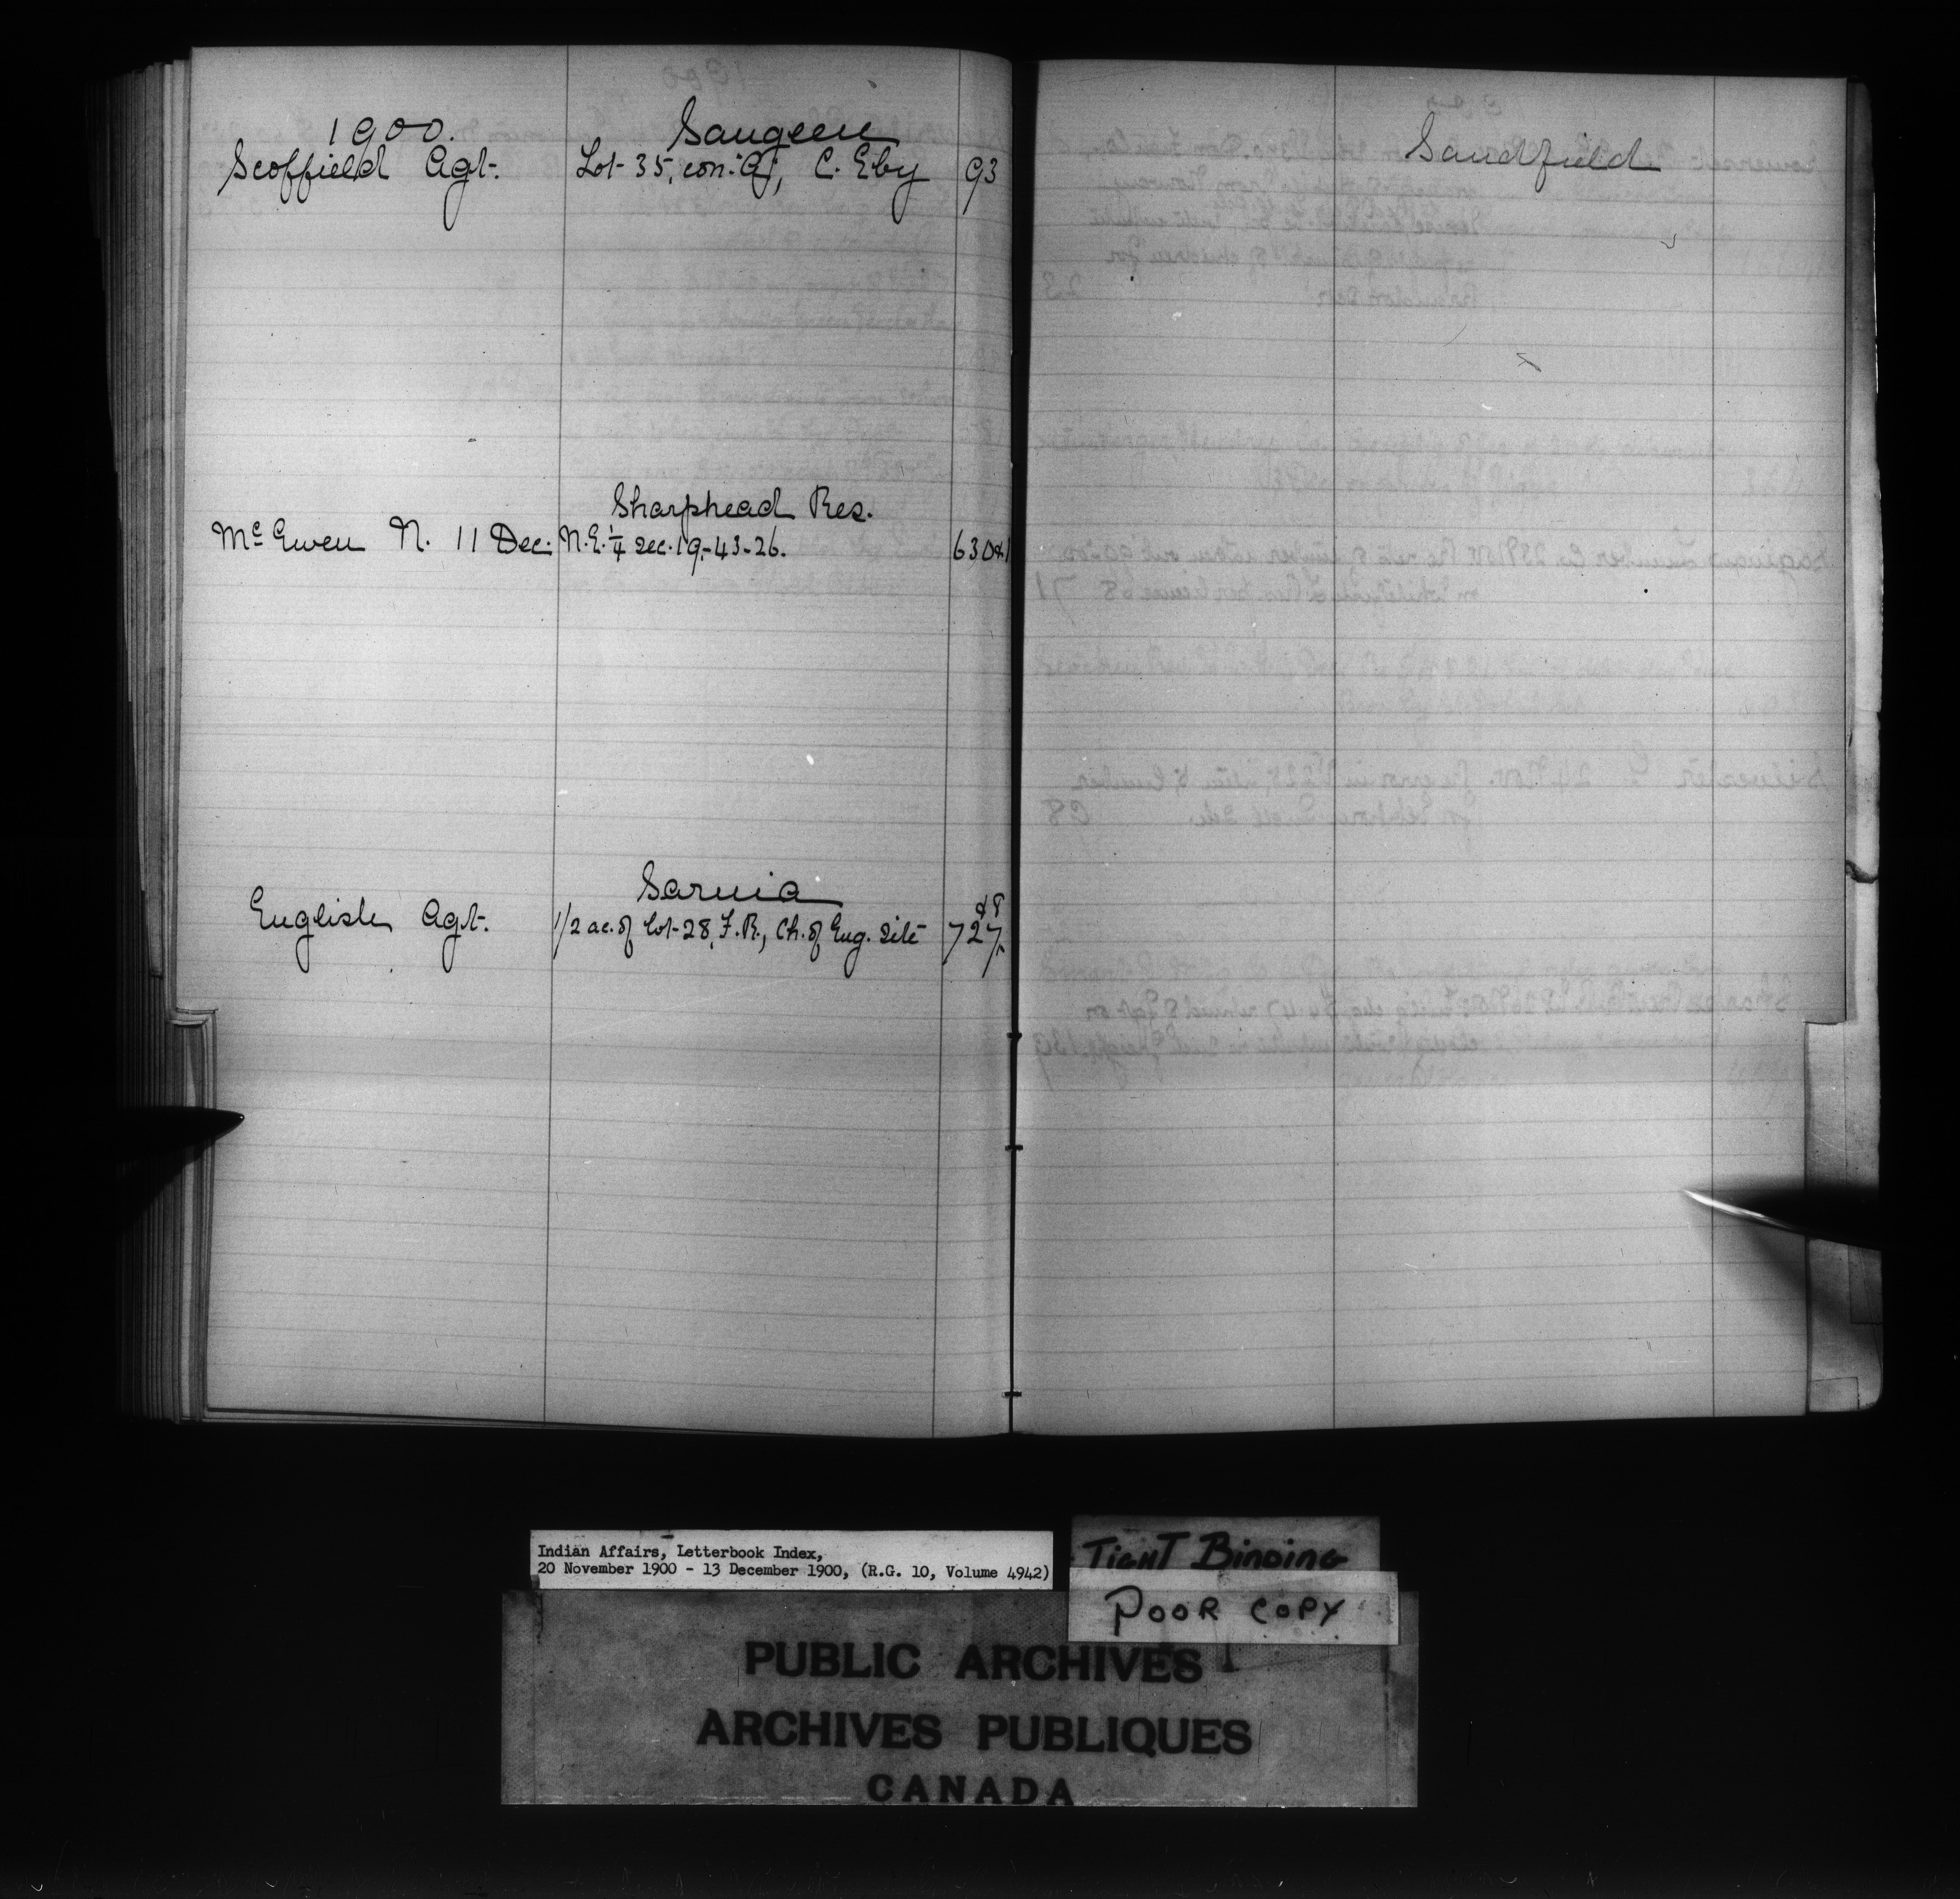 1900. Saugeen
Scoffield Agt. Lot 35, con. "A", C. Eby 93
Sharphead Res.
McEwen N. 11 Dec. N.E. 1/4 sec. 19-43-26. 630&1
Sarnia
English Agt. 1/2 ac. of Lot 28, F.R., Ch. of Eng. site 727 &8
Sandfield
Indian Affairs, Letterbook Index,
20 November 1900 - 13 December 1900, (R.G. 10, Volume 4942)
TIGHT BINDING
POOR COPY
PUBLIC ARCHIVES
ARCHIVES PUBLIQUES
CANADA